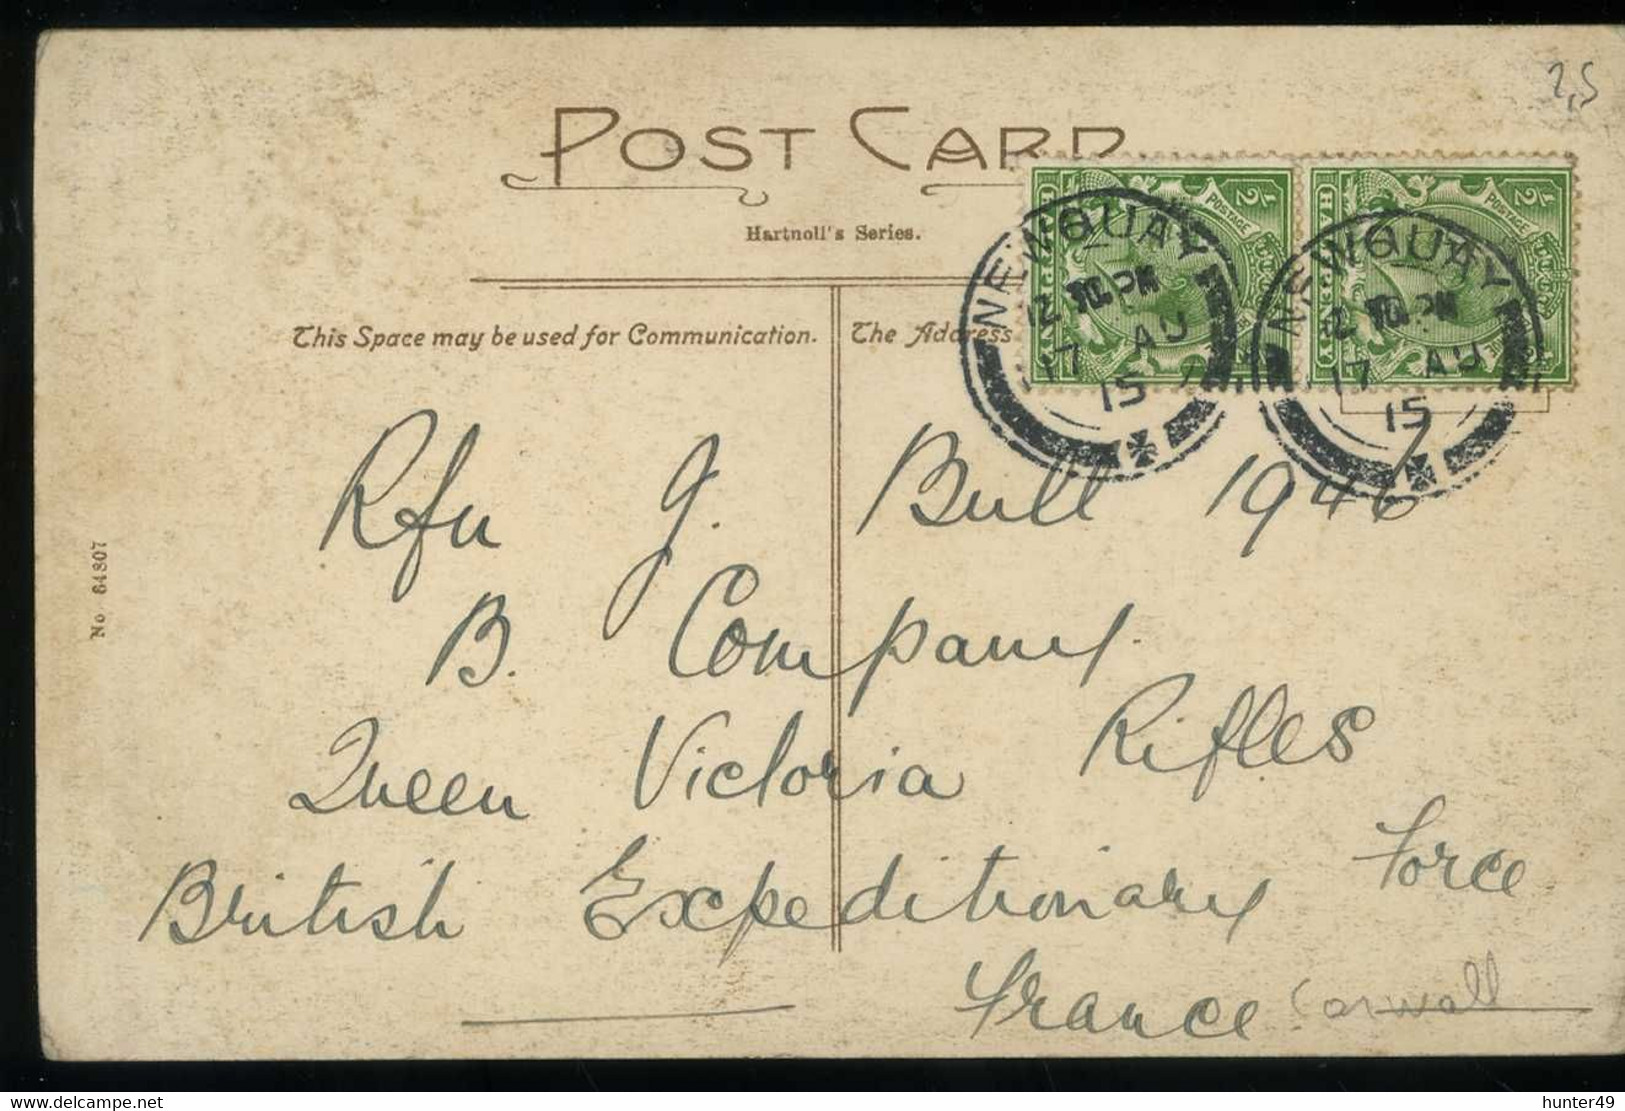 2,5
POST CARD
Hartnoll's Series.
This Space may be used for Communication.
The Address
POSTAGE
½
POSTAGE
½
NEWQUAY
PM
17 AU
15
NEWQUAY
PM
17 AU
15
No 64807
Rfn J. Bull 1946
B. Company.
Queen Victoria Rifles
British Expeditionary Force
France
Cornwall
delcampe.net
hunter49